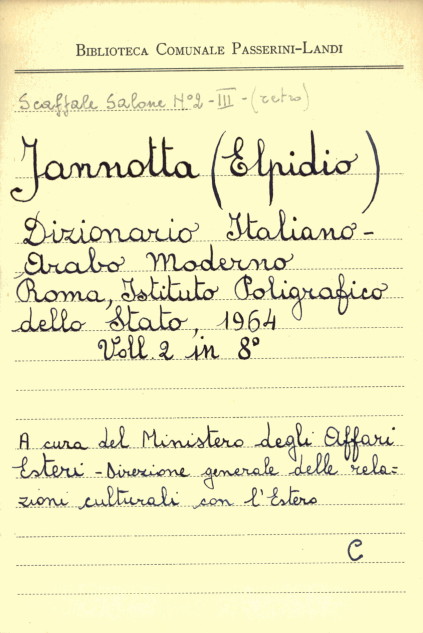 Biblioteca Comunale Passerini-Landi
Scaffale Salone N°2 - III - (retro)
Jannotta (Elpidio)
Dizionario Italiano-
Arabo Moderno
Roma, Istituto Poligrafico
dello Stato, 1964
Voll. 2 in 8°
A cura del Ministero degli Affari
Esteri - Direzione generale delle rela=
zioni culturali con l'Estero
C